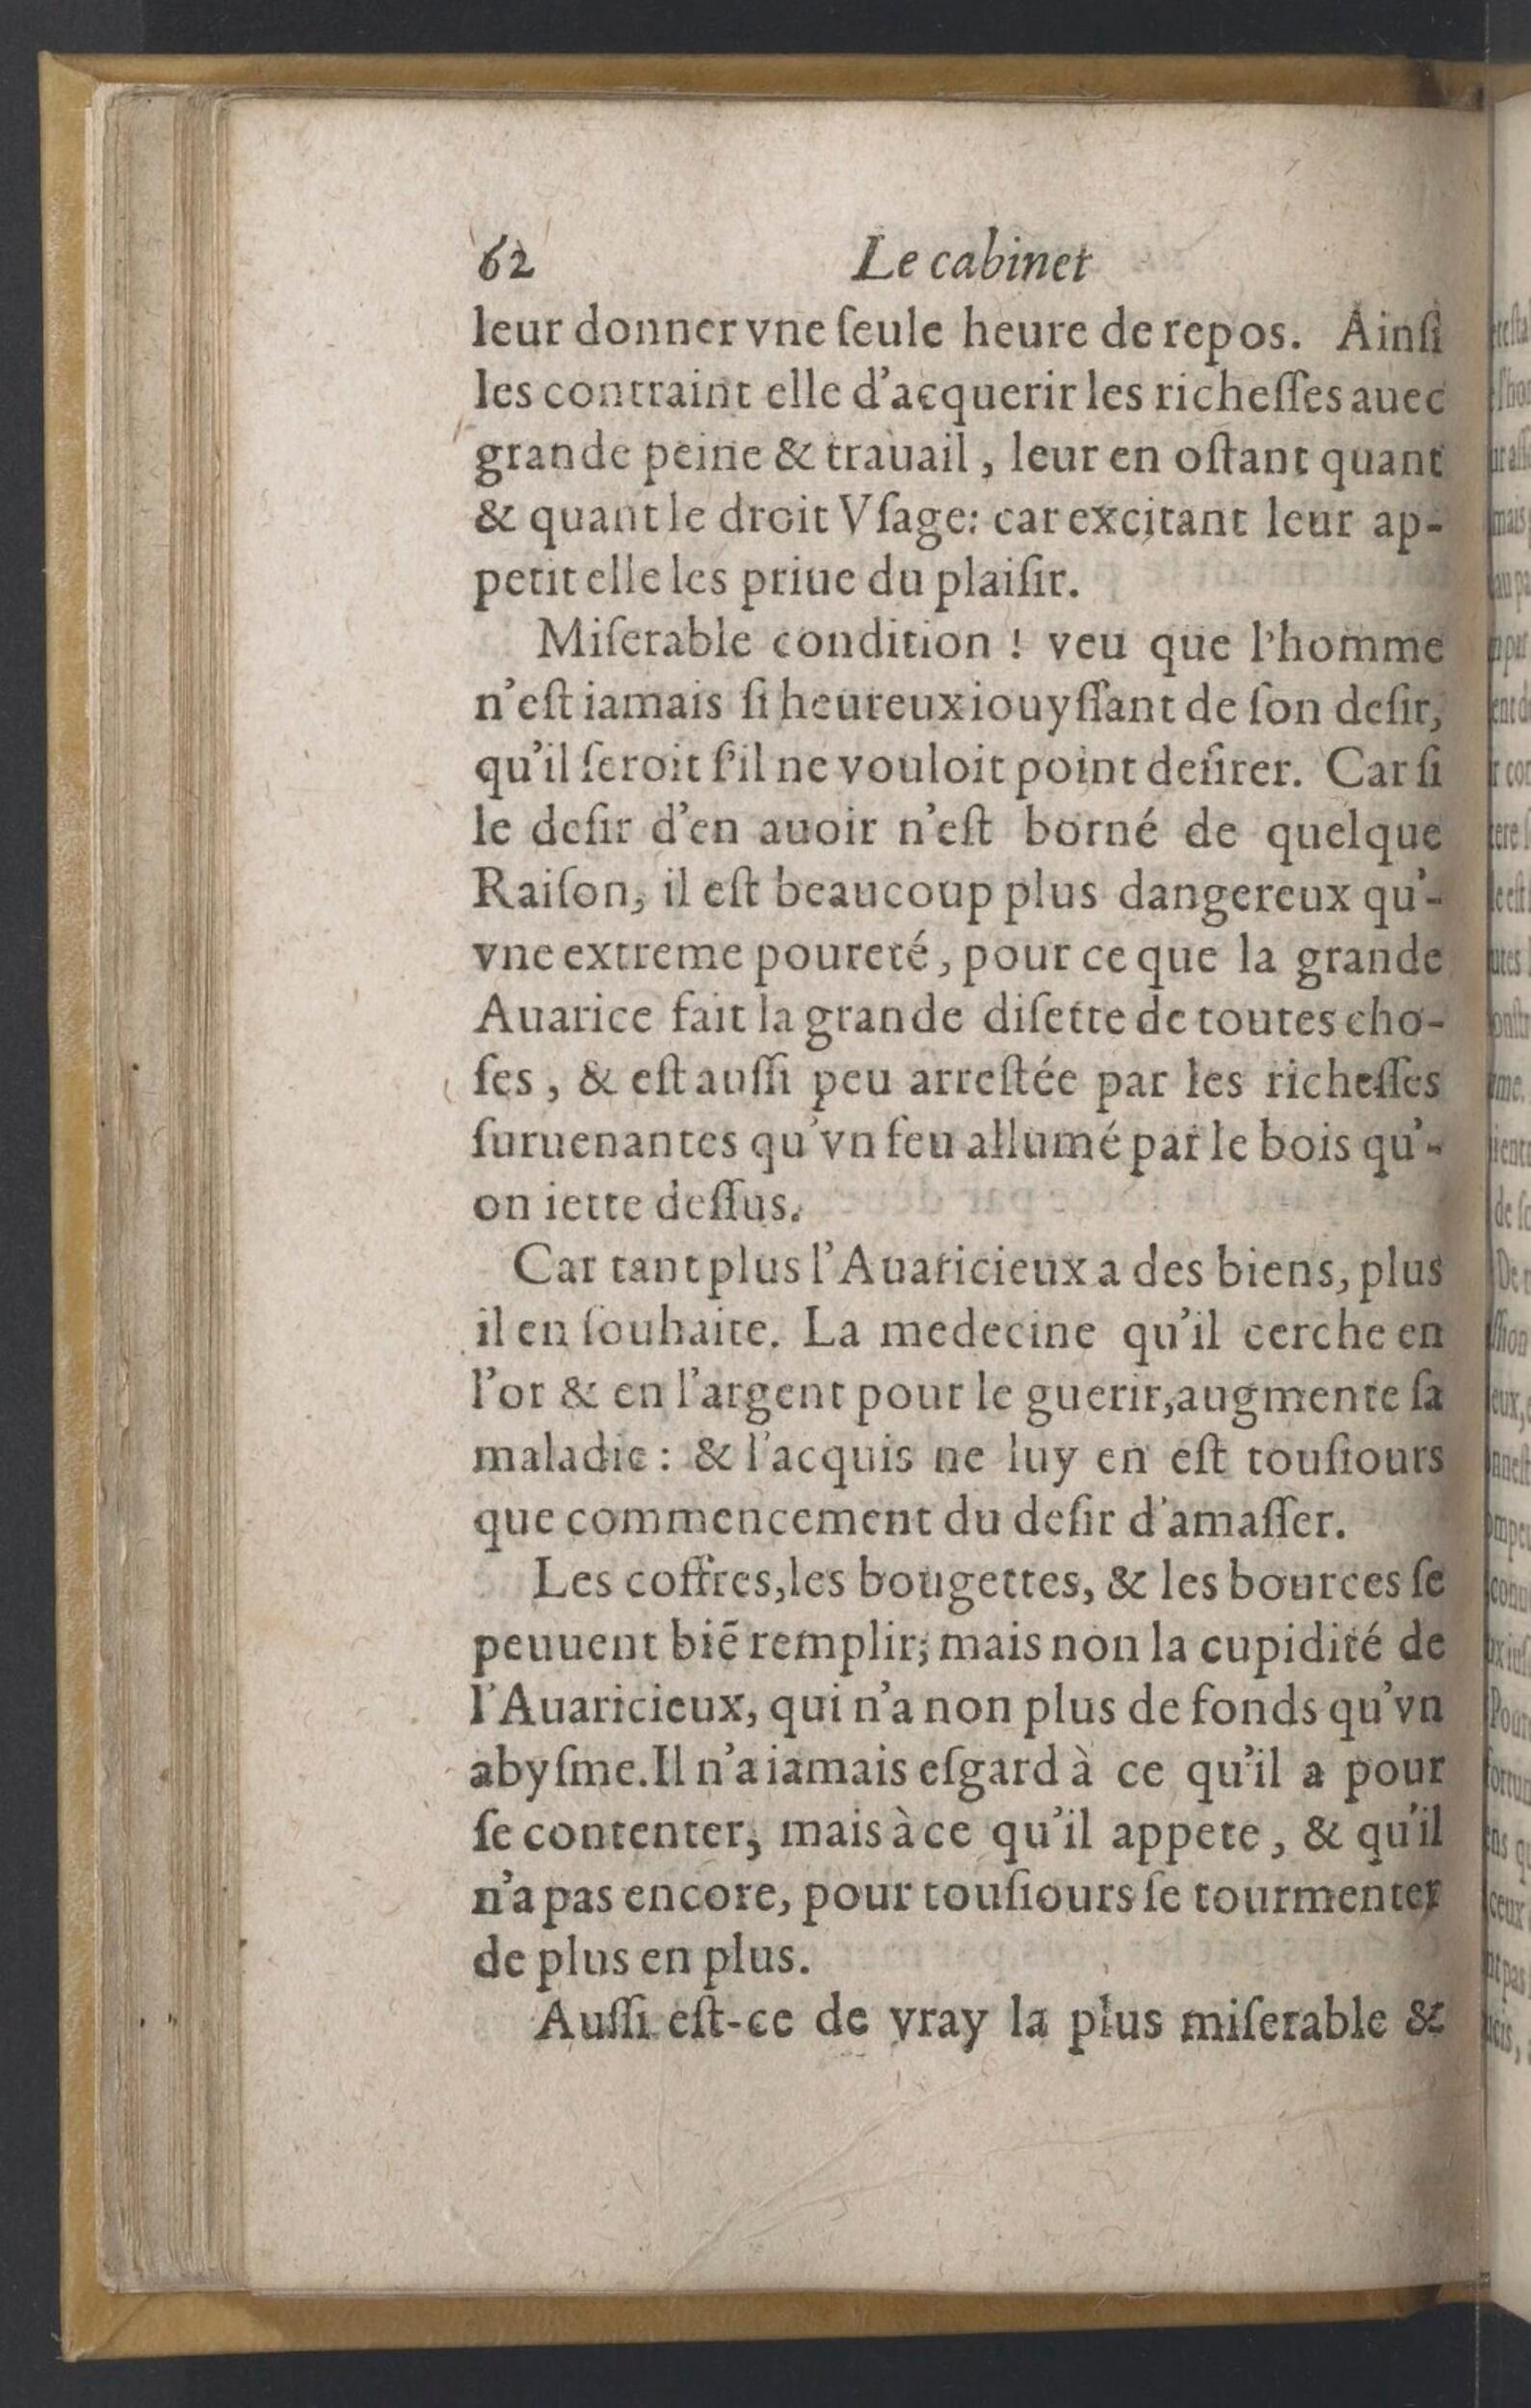 62 Le cabinet
leur donner vne ſeule heure de repos. Ainſi
les contraint elle d'acquerir les richeſſes auec
grande peine & trauail, leur en oſtant quant
& quant le droit Vſage: car excitant leur ap-
petit elle les priue du plaiſir.
Miſerable condition ! veu que l'homme
n'eſt iamais ſi heureux iouyſſant de ſon deſir,
qu'il ſeroit ſ'il ne vouloit point deſirer. Car ſi
le deſir d'en auoir n'eſt borné de quelque
Raiſon, il eſt beaucoup plus dangereux qu'-
vne extreme poureté, pour ce que la grande
Auarice fait la grande diſette de toutes cho-
ſes, & eſt auſſi peu arreſtée par les richeſſes
ſuruenantes qu'vn feu allumé par le bois qu'-
on iette deſſus.
Car tant plus l'Auaricieux a des biens, plus
il en ſouhaite. La medecine qu'il cerche en
l'or & en l'argent pour le guerir, augmente ſa
maladie : & l'acquis ne luy en eſt touſiours
que commencement du deſir d'amaſſer.
Les coffres, les bougettes, & les bources ſe
peuuent biẽ remplir; mais non la cupidité de
l'Auaricieux, qui n'a non plus de fonds qu'vn
abyſme. Il n'a iamais eſgard à ce qu'il a pour
ſe contenter, mais à ce qu'il appete, & qu'il
n'a pas encore, pour touſiours ſe tourmenter
de plus en plus.
Auſſi eſt-ce de vray la plus miſerable &